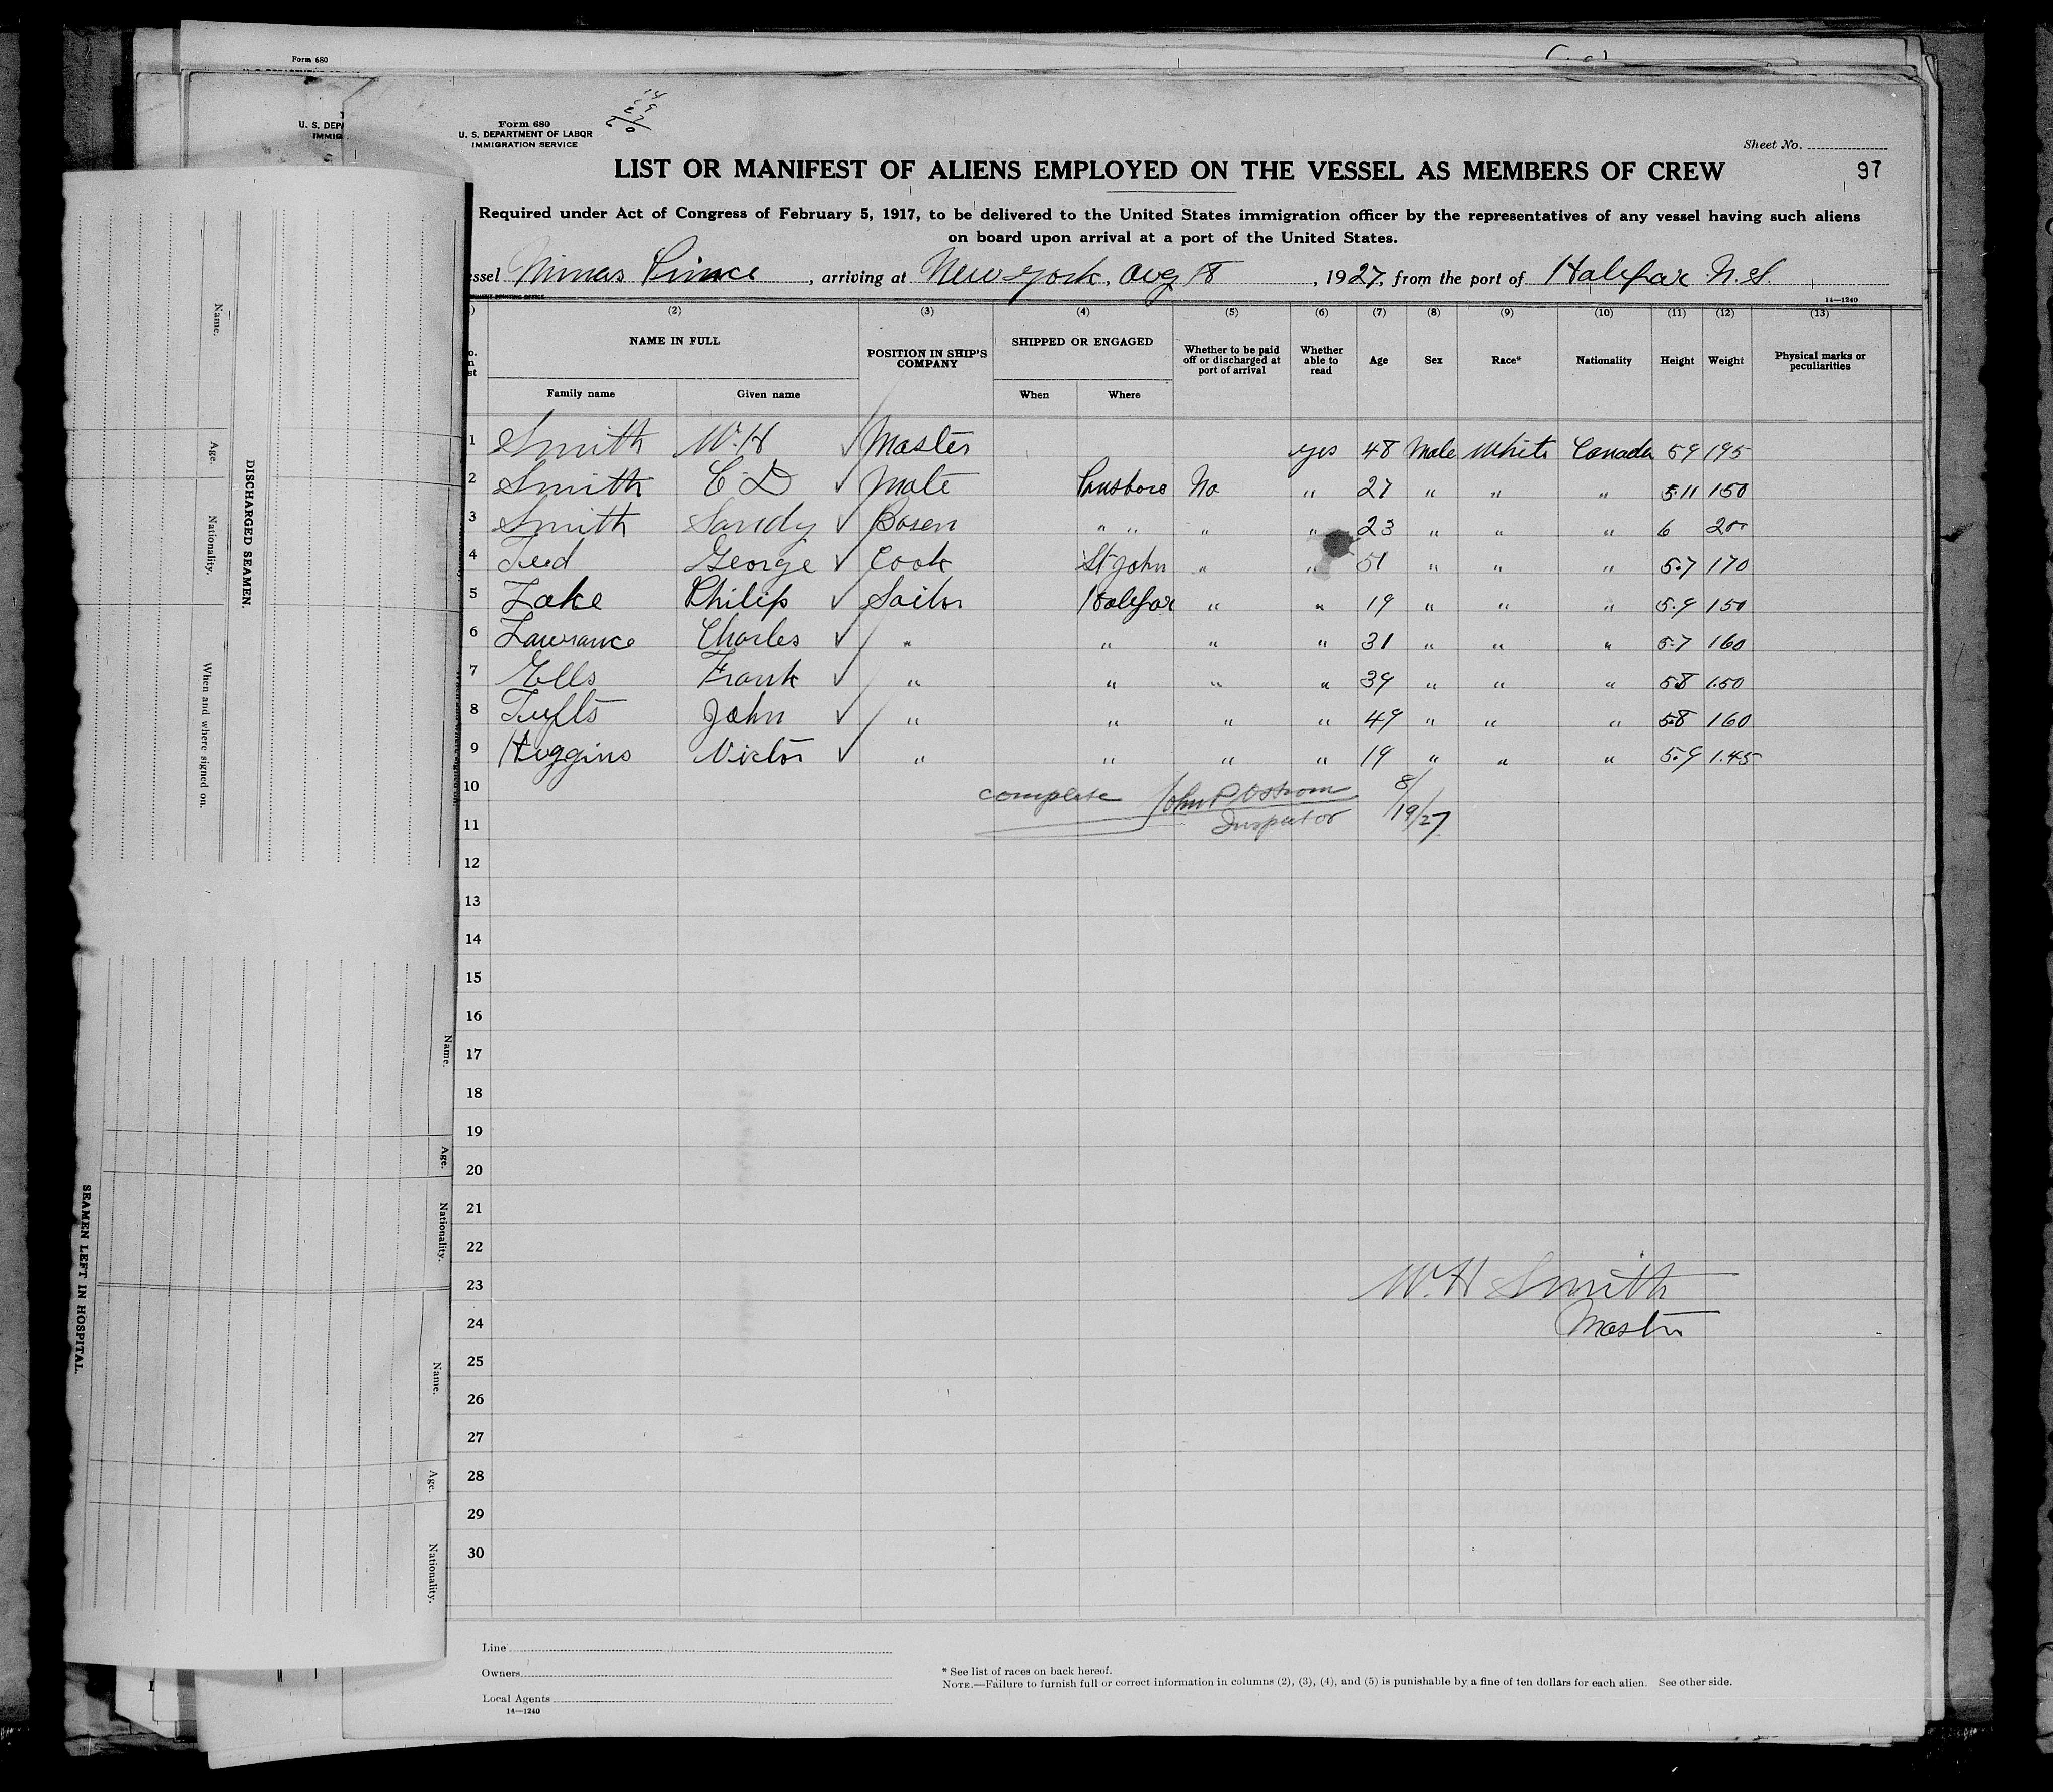 Form 680
U. S. DEPA
IMMIG
Form 680
U. S. DEPARTMENT OF LABOR
IMMIGRATION SERVICE
Sheet No.
97
LIST OR MANIFEST OF ALIENS EMPLOYED ON THE VESSEL AS MEMBERS OF CREW
Required under Act of Congress of February 5, 1917, to be delivered to the United States immigration officer by the representatives of any vessel having such aliens
on board upon arrival at a port of the United States.
ssel Minas Prince, arriving at New York, Aug 18, 1927, from the port of Halifax N.S.
14—1240
(2) (3) (4) (5) (6) (7) (8) (9) (10) (11) (12) (13)
NAME IN FULL POSITION IN SHIP'S COMPANY SHIPPED OR ENGAGED Whether to be paid off or discharged at port of arrival Whether able to read Age Sex Race* Nationality Height Weight Physical marks or peculiarities
Family name Given name When Where
1 Smith W.H ✓ Master yes 48 Male White Canada 59 195
2 Smith C D ✓ Mate No " 27 " " " 5.11 150
3 Smith Sandy ✓ Bosen " " " " 23 " " " 6 200
4 George ✓ Cook St John " " 51 " " " 5.7 170
5 Lake Philip ✓ Sailor Halifax " " 19 " " " 5.9 150
6 Lawrance Charles ✓ " " " " 31 " " " 5.7 160
7 Ells Frank ✓ " " " " 39 " " " 58 150
8 Tufts John ✓ " " " " 49 " " " 5.8 160
9 Huggins Victor ✓ " " " " 19 " " " 5.9 1.45
10 complete John P Ostrom 8/19/27
11 Inspector
12
13
14
15
16
17
18
19
20
21
22
23 W. H Smith
24 Master
25
26
27
28
29
30
Line
Owners
Local Agents
14—1240
* See list of races on back hereof.
NOTE.—Failure to furnish full or correct information in columns (2), (3), (4), and (5) is punishable by a fine of ten dollars for each alien. See other side.
DISCHARGED SEAMEN.
Name.
Age.
Nationality.
When and where signed on.
SEAMEN LEFT IN HOSPITAL.
Name.
Age.
Nationality.
Name.
Age.
Nationality.